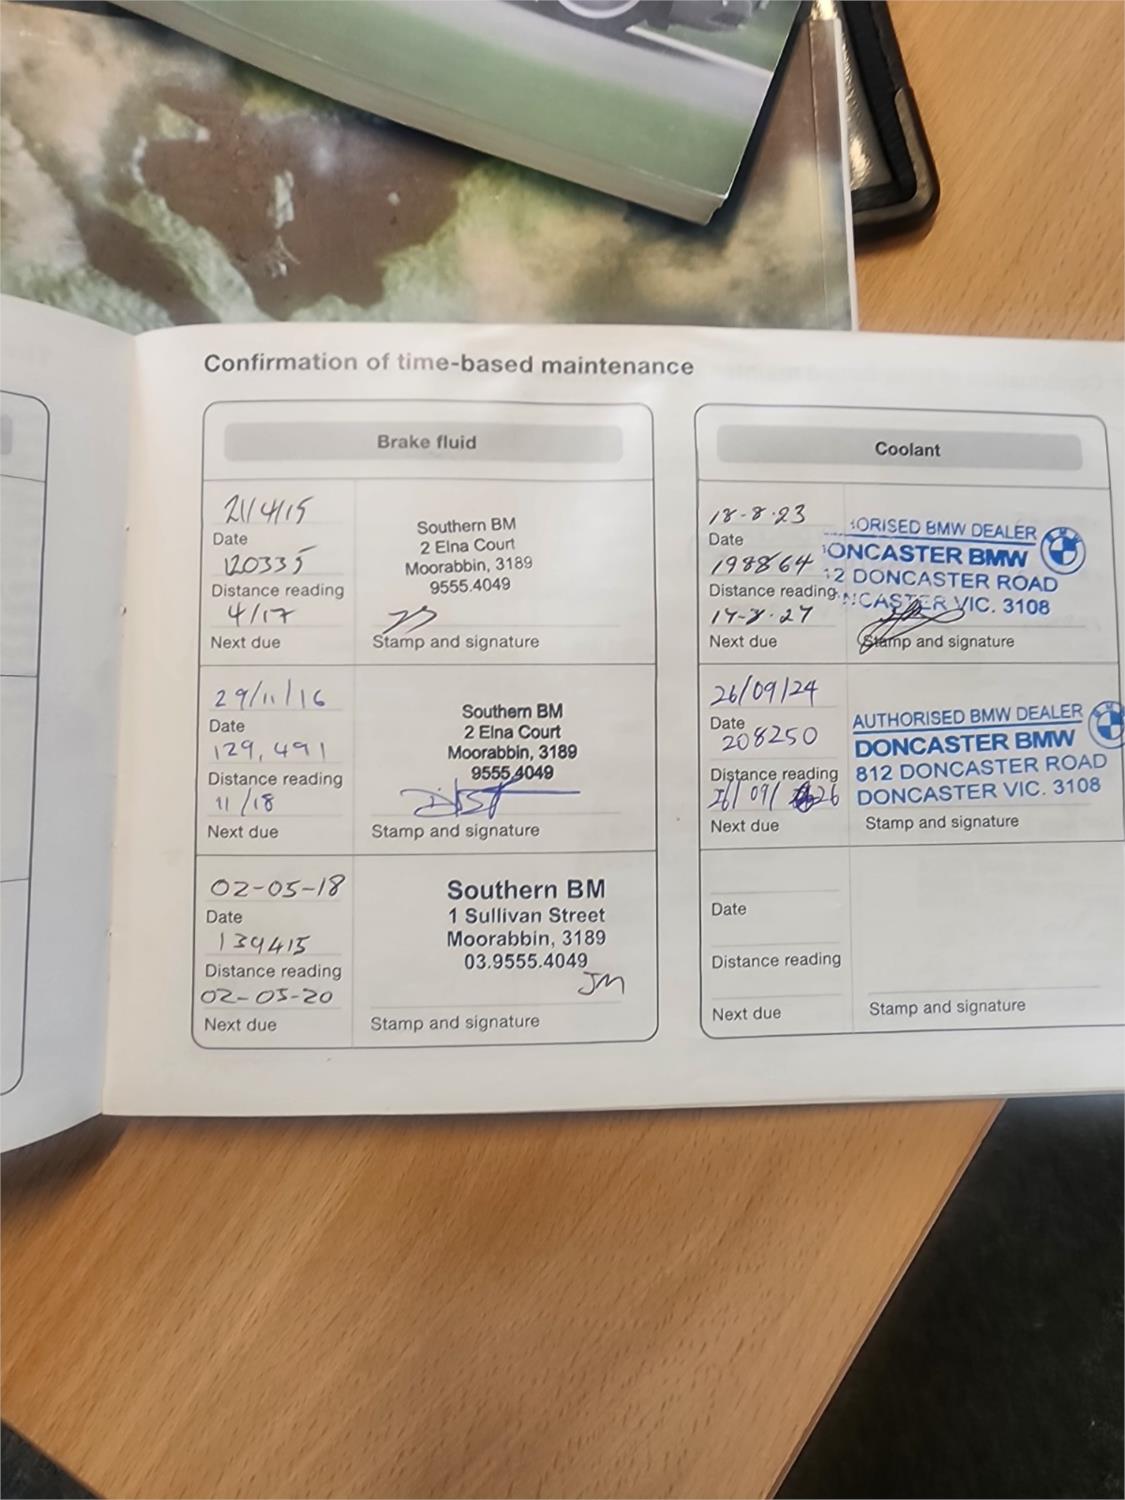 Confirmation of time-based maintenance
Brake fluid
21/4/15
Date
120335
Distance reading
4/17
Next due
Southern BM
2 Elna Court
Moorabbin, 3189
9555.4049
Stamp and signature
29/11/16
Date
129,491
Distance reading
11/18
Next due
Southern BM
2 Elna Court
Moorabbin, 3189
9555.4049
Stamp and signature
02-05-18
Date
139415
Distance reading
02-05-20
Next due
Southern BM
1 Sullivan Street
Moorabbin, 3189
03.9555.4049
JM
Stamp and signature
Coolant
18-8-23
Date
198864
Distance reading
Next due
ORISED BMW DEALER
ONCASTER BMW
2 DONCASTER ROAD
NCASTER VIC. 3108
Stamp and signature
26/09/24
Date
208250
Distance reading
26/09/26
Next due
AUTHORISED BMW DEALER
DONCASTER BMW
812 DONCASTER ROAD
DONCASTER VIC. 3108
Stamp and signature
Date
Distance reading
Next due
Stamp and signature